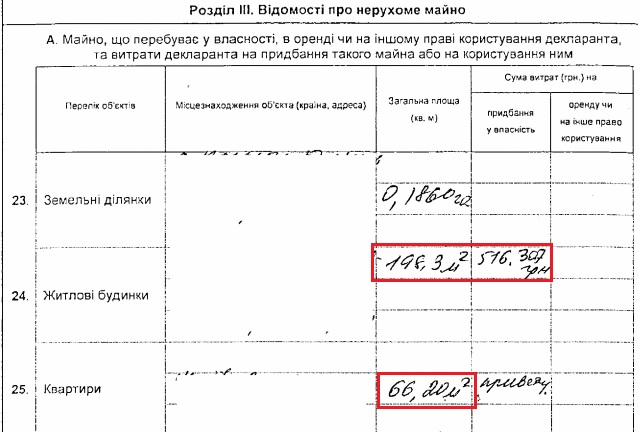 Розділ III. Відомості про нерухоме майно
А. Майно, що перебуває у власності, в оренді чи на іншому праві користування декларанта,
та витрати декларанта на придбання такого майна або на користування ним
Перелік об'єктів
Місцезнаходження об'єкта (країна, адреса)
Загальна площа
(кв. м)
Сума витрат (грн.) на
придбання
у власність
оренду чи
на інше право
користування
23. Земельні ділянки
0,1860га
198,3 м² 516.307
грн
24. Житлові будинки
25. Квартири
66,20 м²